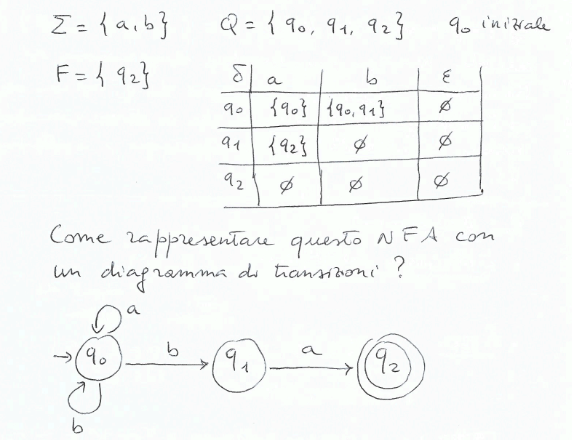 Σ = {a,b} Q = {q0, q1, q2} q0 iniziale
F = {q2}
δ a b ε
q0 {q0} {q0,q1} ∅
q1 {q2} ∅ ∅
q2 ∅ ∅ ∅
Come rappresentare questo NFA con
un diagramma di transizioni?
a
q0 b q1 a q2
b